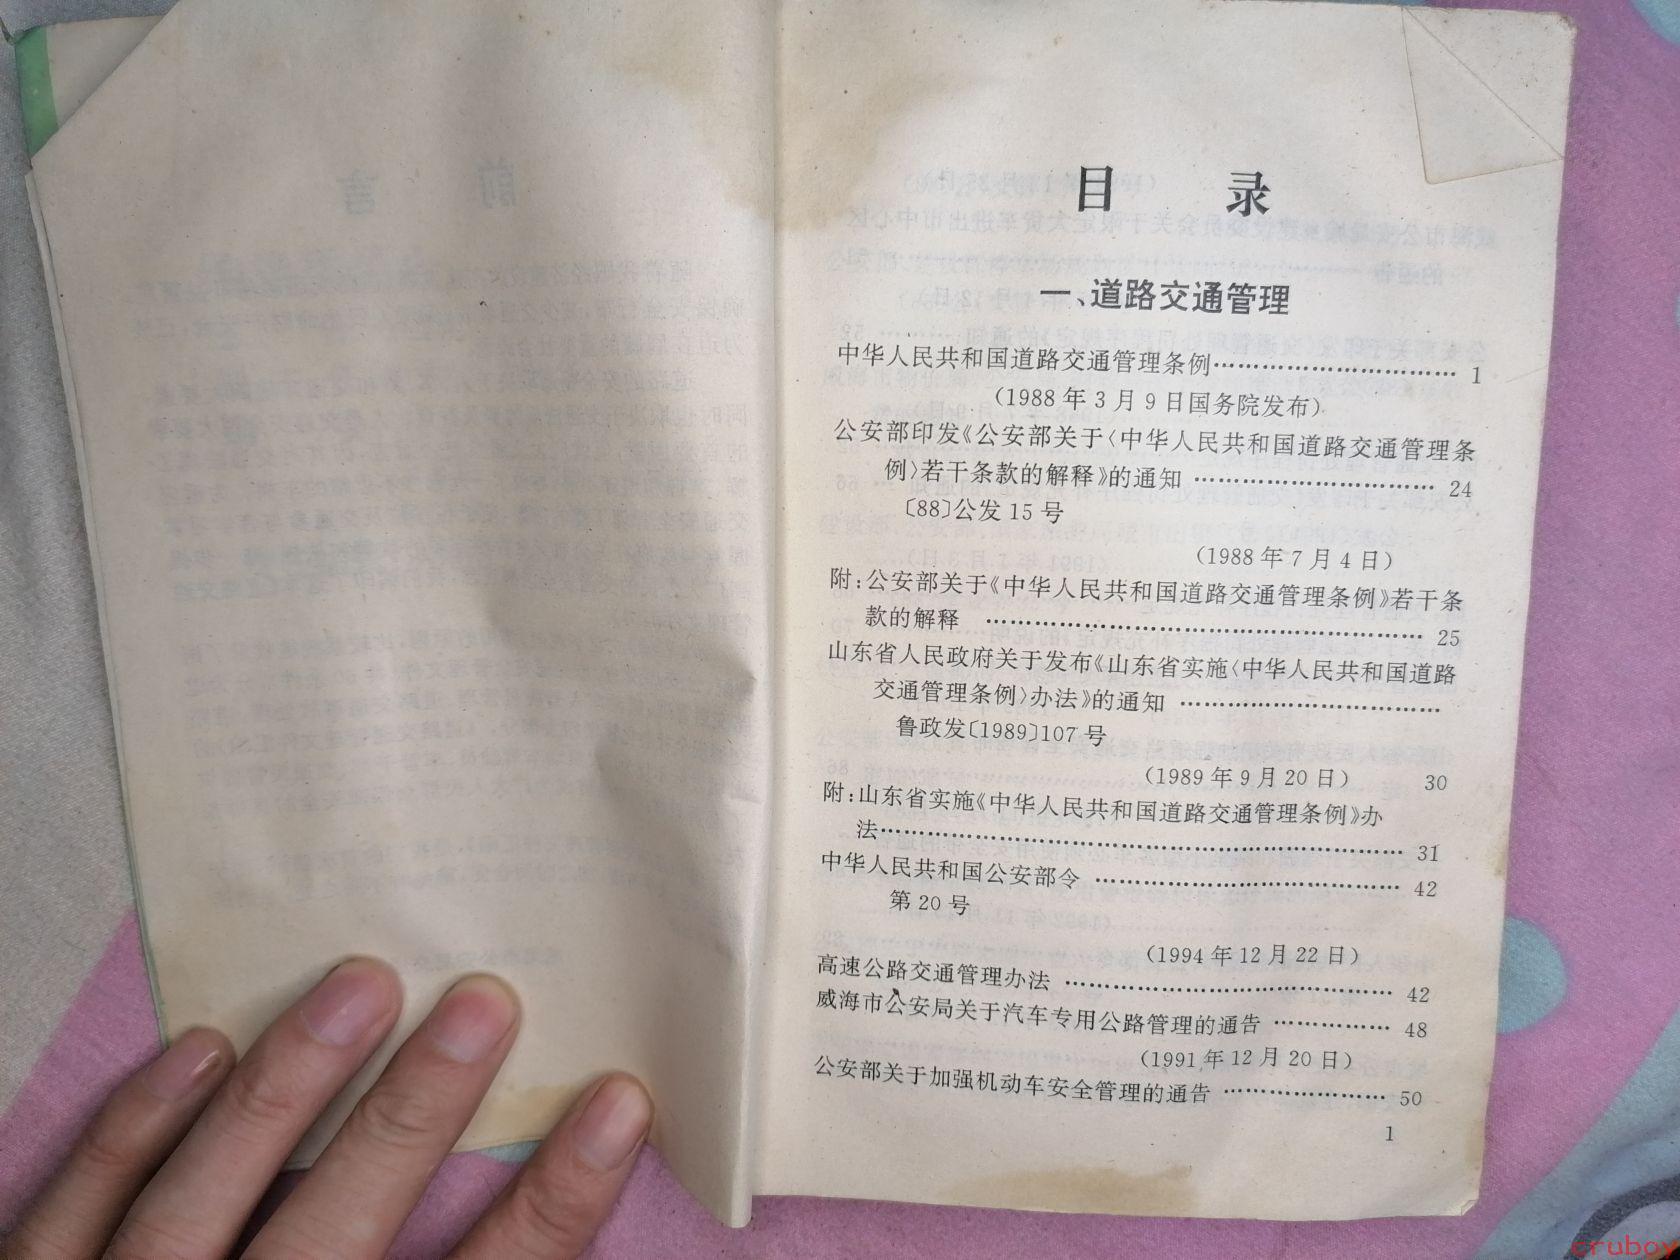 目 录
一、道路交通管理
中华人民共和国道路交通管理条例………………………… 1
(1988年3月9日国务院发布)
公安部印发《公安部关于〈中华人民共和国道路交通管理条
例〉若干条款的解释》的通知 ………………………… 24
〔88〕公发15号
(1988年7月4日)
附:公安部关于《中华人民共和国道路交通管理条例》若干条
款的解释 ………………………………………………… 25
山东省人民政府关于发布《山东省实施〈中华人民共和国道路
交通管理条例〉办法》的通知 ……………………………
鲁政发〔1989〕107号
(1989年9月20日) 30
附:山东省实施《中华人民共和国道路交通管理条例》办
法………………………………………………………… 31
中华人民共和国公安部令 ………………………………… 42
第20号
(1994年12月22日)
高速公路交通管理办法 …………………………………… 42
威海市公安局关于汽车专用公路管理的通告 …………… 48
(1991年12月20日)
公安部关于加强机动车安全管理的通告 ………………… 50
1
cruboy